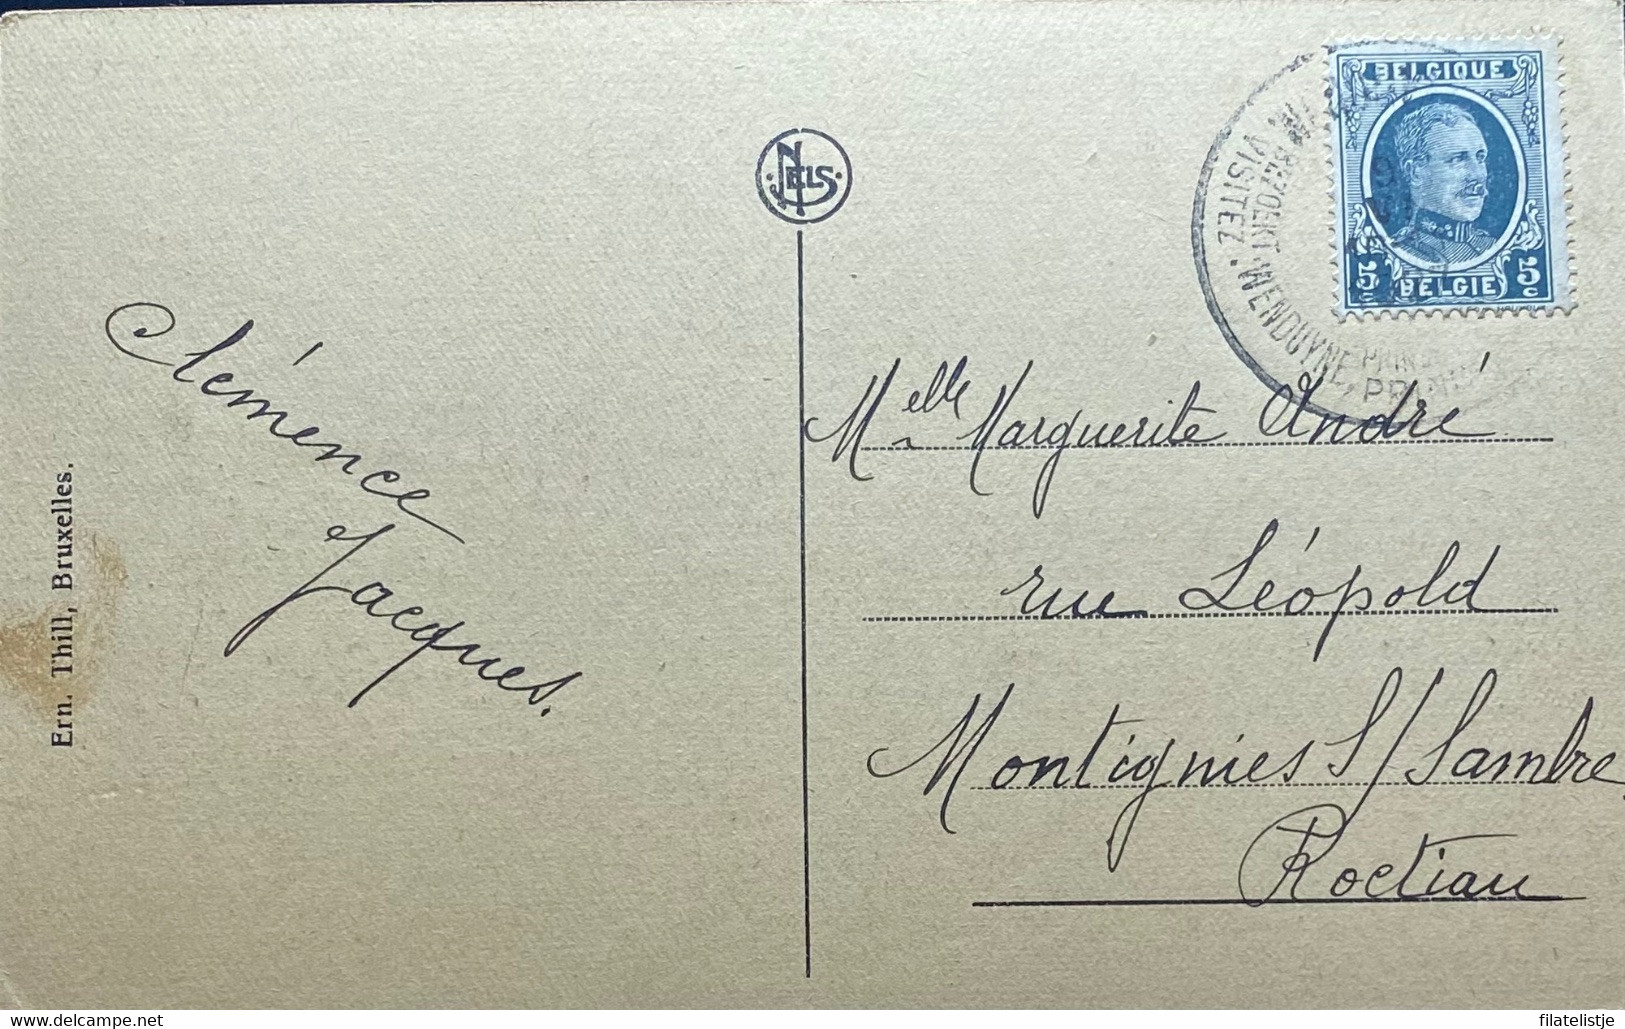 NELS
BELGIQUE
5c BELGIE 5c
VISITEZ · WENDUYNE,
BEZOEKT WENDUYNE
Clémence
Jacques.
Melle Marguerite André
rue Léopold
Montignies S/Sambre
Roctiau
Ern. Thill, Bruxelles.
Website: www.delcampe.net - filatelistje